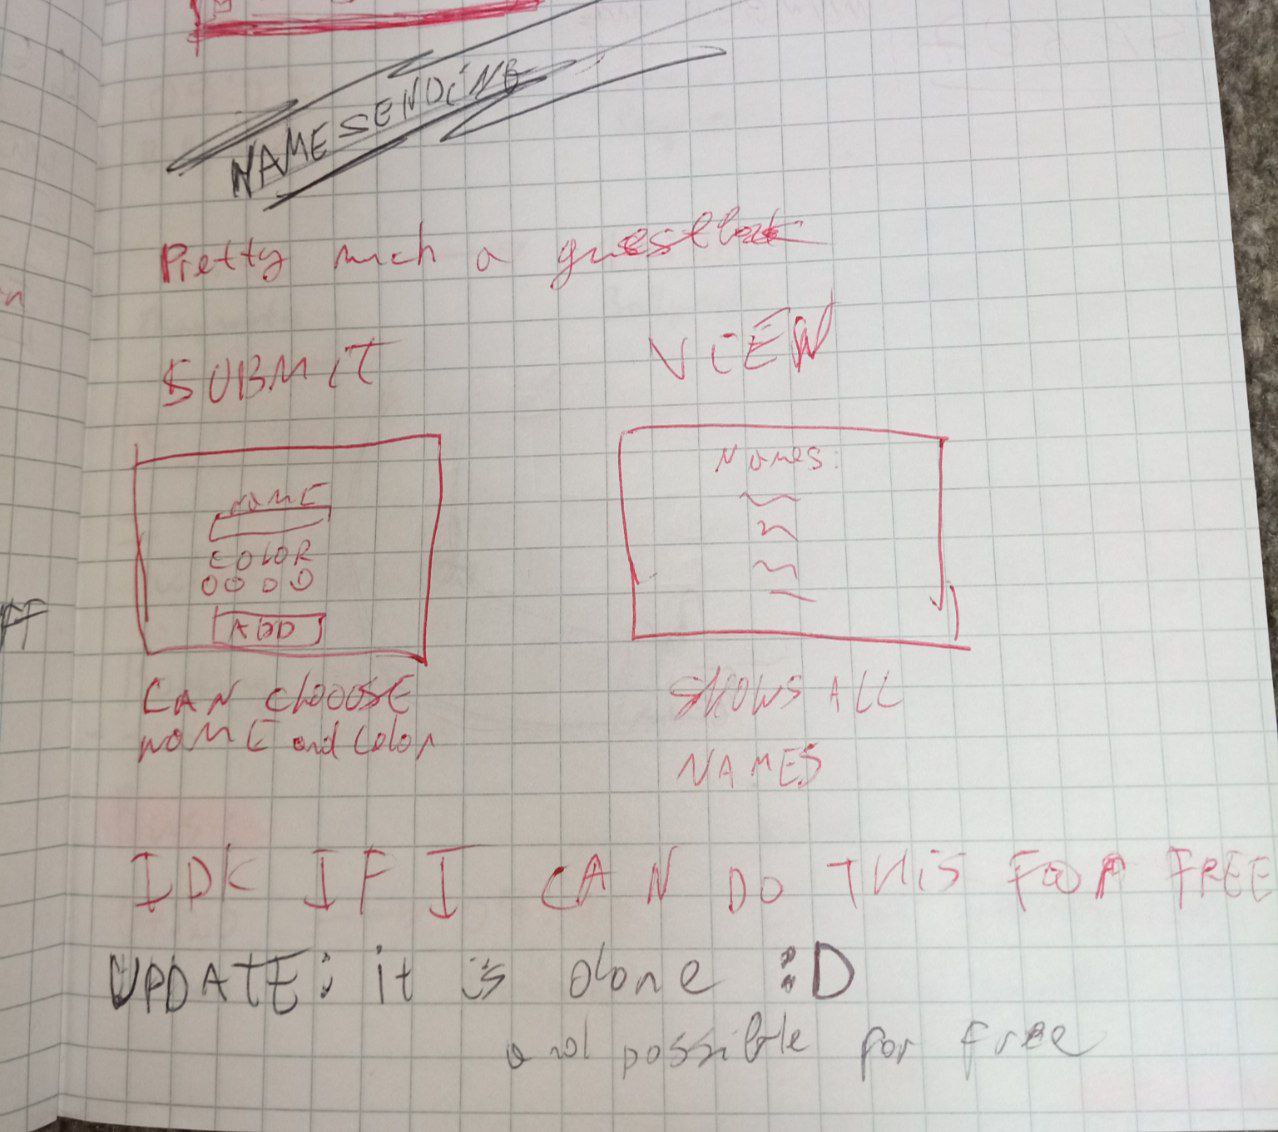 NAMESENDING
Pretty much a guestbook
SUBMIT
VIEW
NAME
COLOR
ADD
Names:
CAN CHOOSE
NAME and Color
SHOWS ALL
NAMES
IDK IF I CAN DO THIS FOR FREE
UPDATE: it is done :D
and possible for free